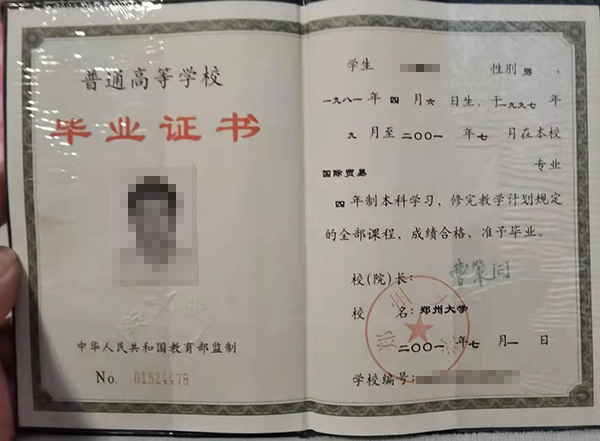 普通高等学校
毕业证书
中华人民共和国教育部监制
No.
学生 性别 男,
一九八一年 四月 六日生,于一九九七年
九月至二〇〇一年七月在本校
国际贸易 专业
四年制本科学习,修完教学计划规定
的全部课程,成绩合格,准予毕业。
校(院)长:
校 名:郑州大学
二〇〇一年七月一日
学校编号: